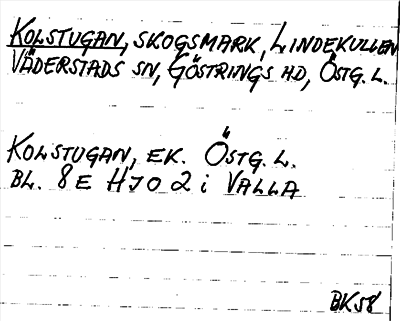 KOLSTUGAN, SKOGSMARK, LINDEKULLEN
VÄDERSTADS SN, GÖSTRINGS HD, ÖSTG. L.
KOLSTUGAN, EK. ÖSTG. L.
BL. 8 E HJO 2 i VALLA
BK58